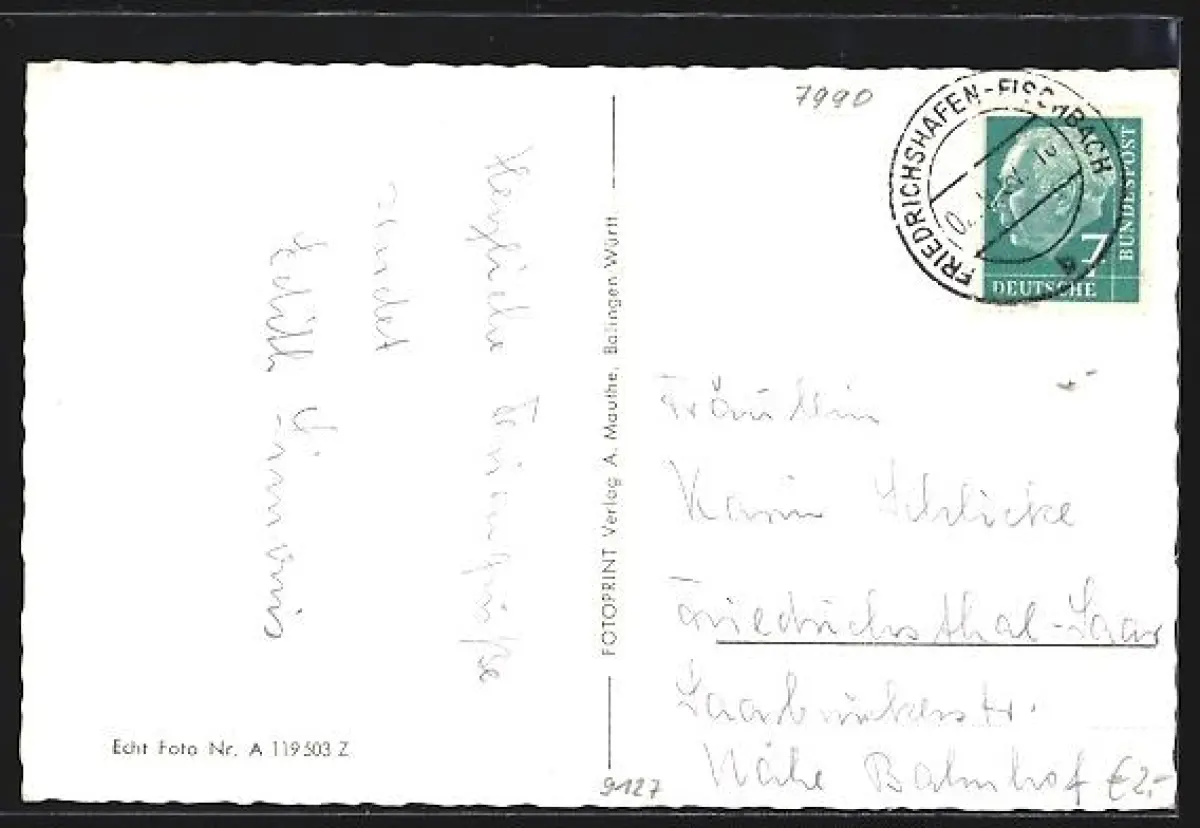 7990
FRIEDRICHSHAFEN-FISCHBACH
BUNDESPOST
7
DEUTSCHE
Herzliche Feriengrüße
sendet
Edith
FOTOPRINT Verlag A. Mauthe, Balingen-Württ.
Fräulein
Karin Schlicke
Friedrichsthal-Saar
Saarbrückerstr.
Nähe Bahnhof €2,-
Echt Foto Nr. A 119503 Z
9127